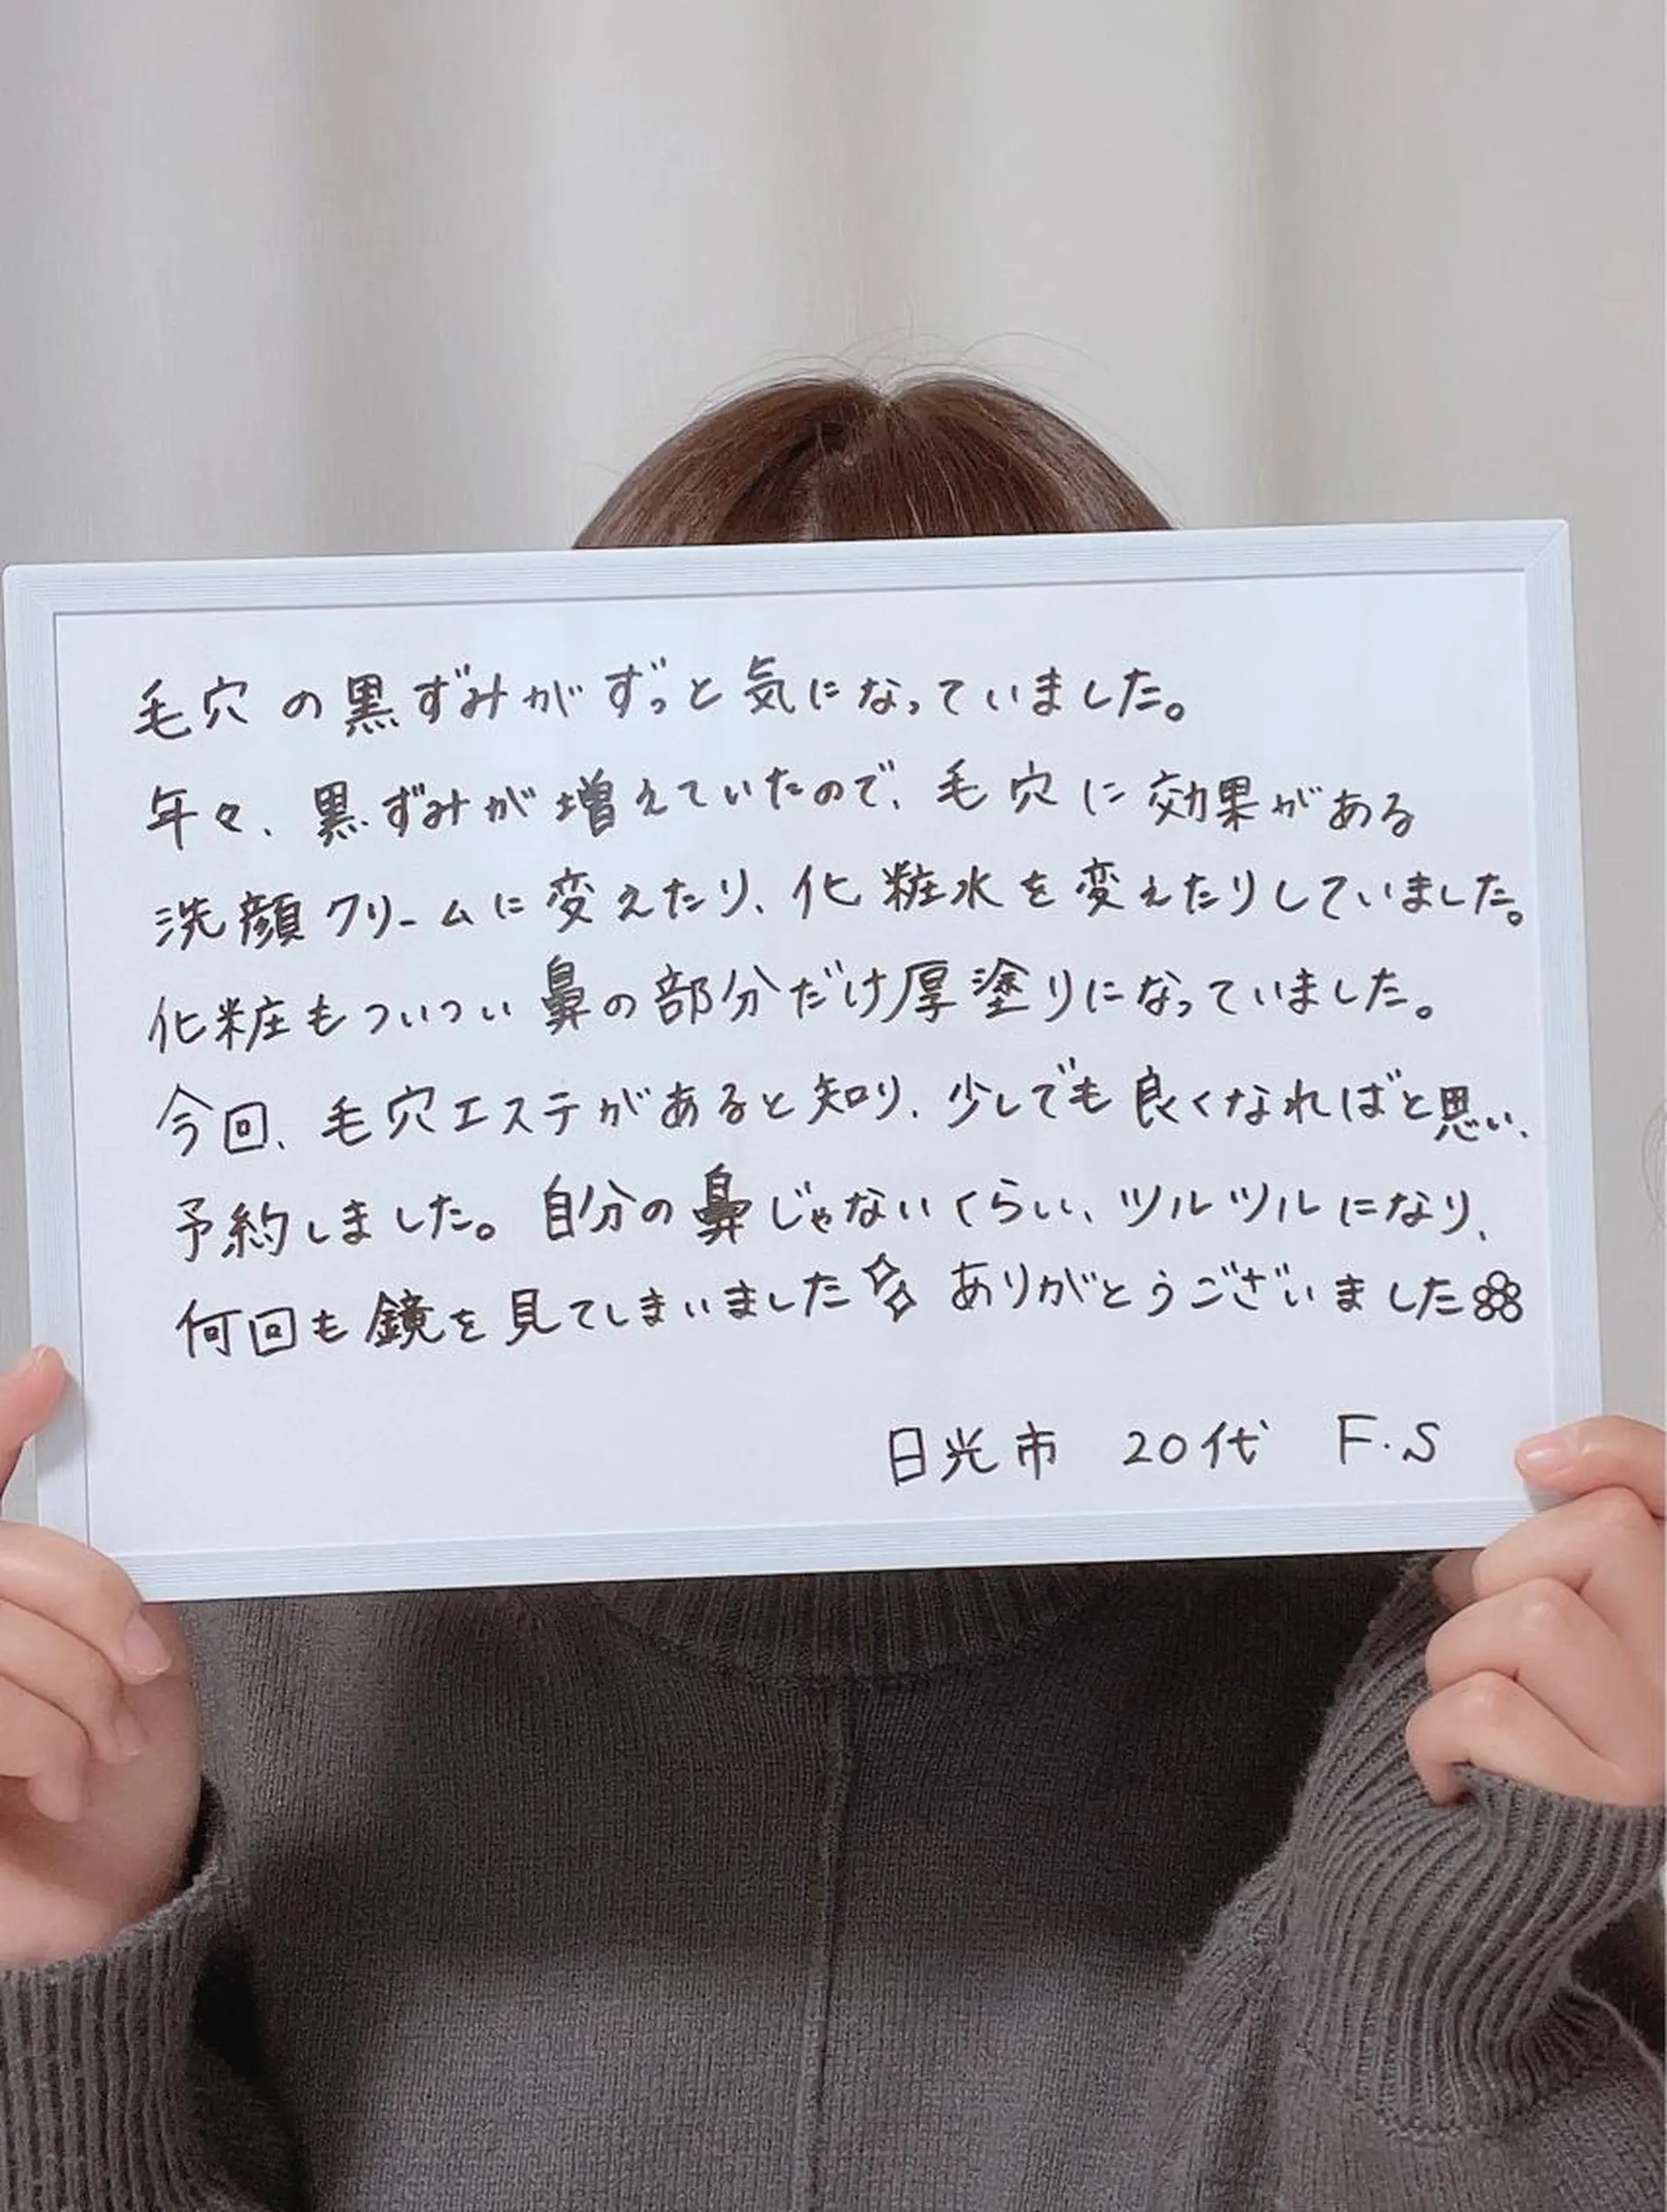 毛穴の黒ずみがずっと気になっていました。
年々、黒ずみが増えていたので、毛穴に効果がある
洗顔クリームに変えたり、化粧水を変えたりしていました。
化粧もついつい鼻の部分だけ厚塗りになっていました。
今回、毛穴エステがあると知り、少しでも良くなればと思い、
予約しました。自分の鼻じゃないくらい、ツルツルになり、
何回も鏡を見てしまいました ありがとうございました
日光市 20代 F.S